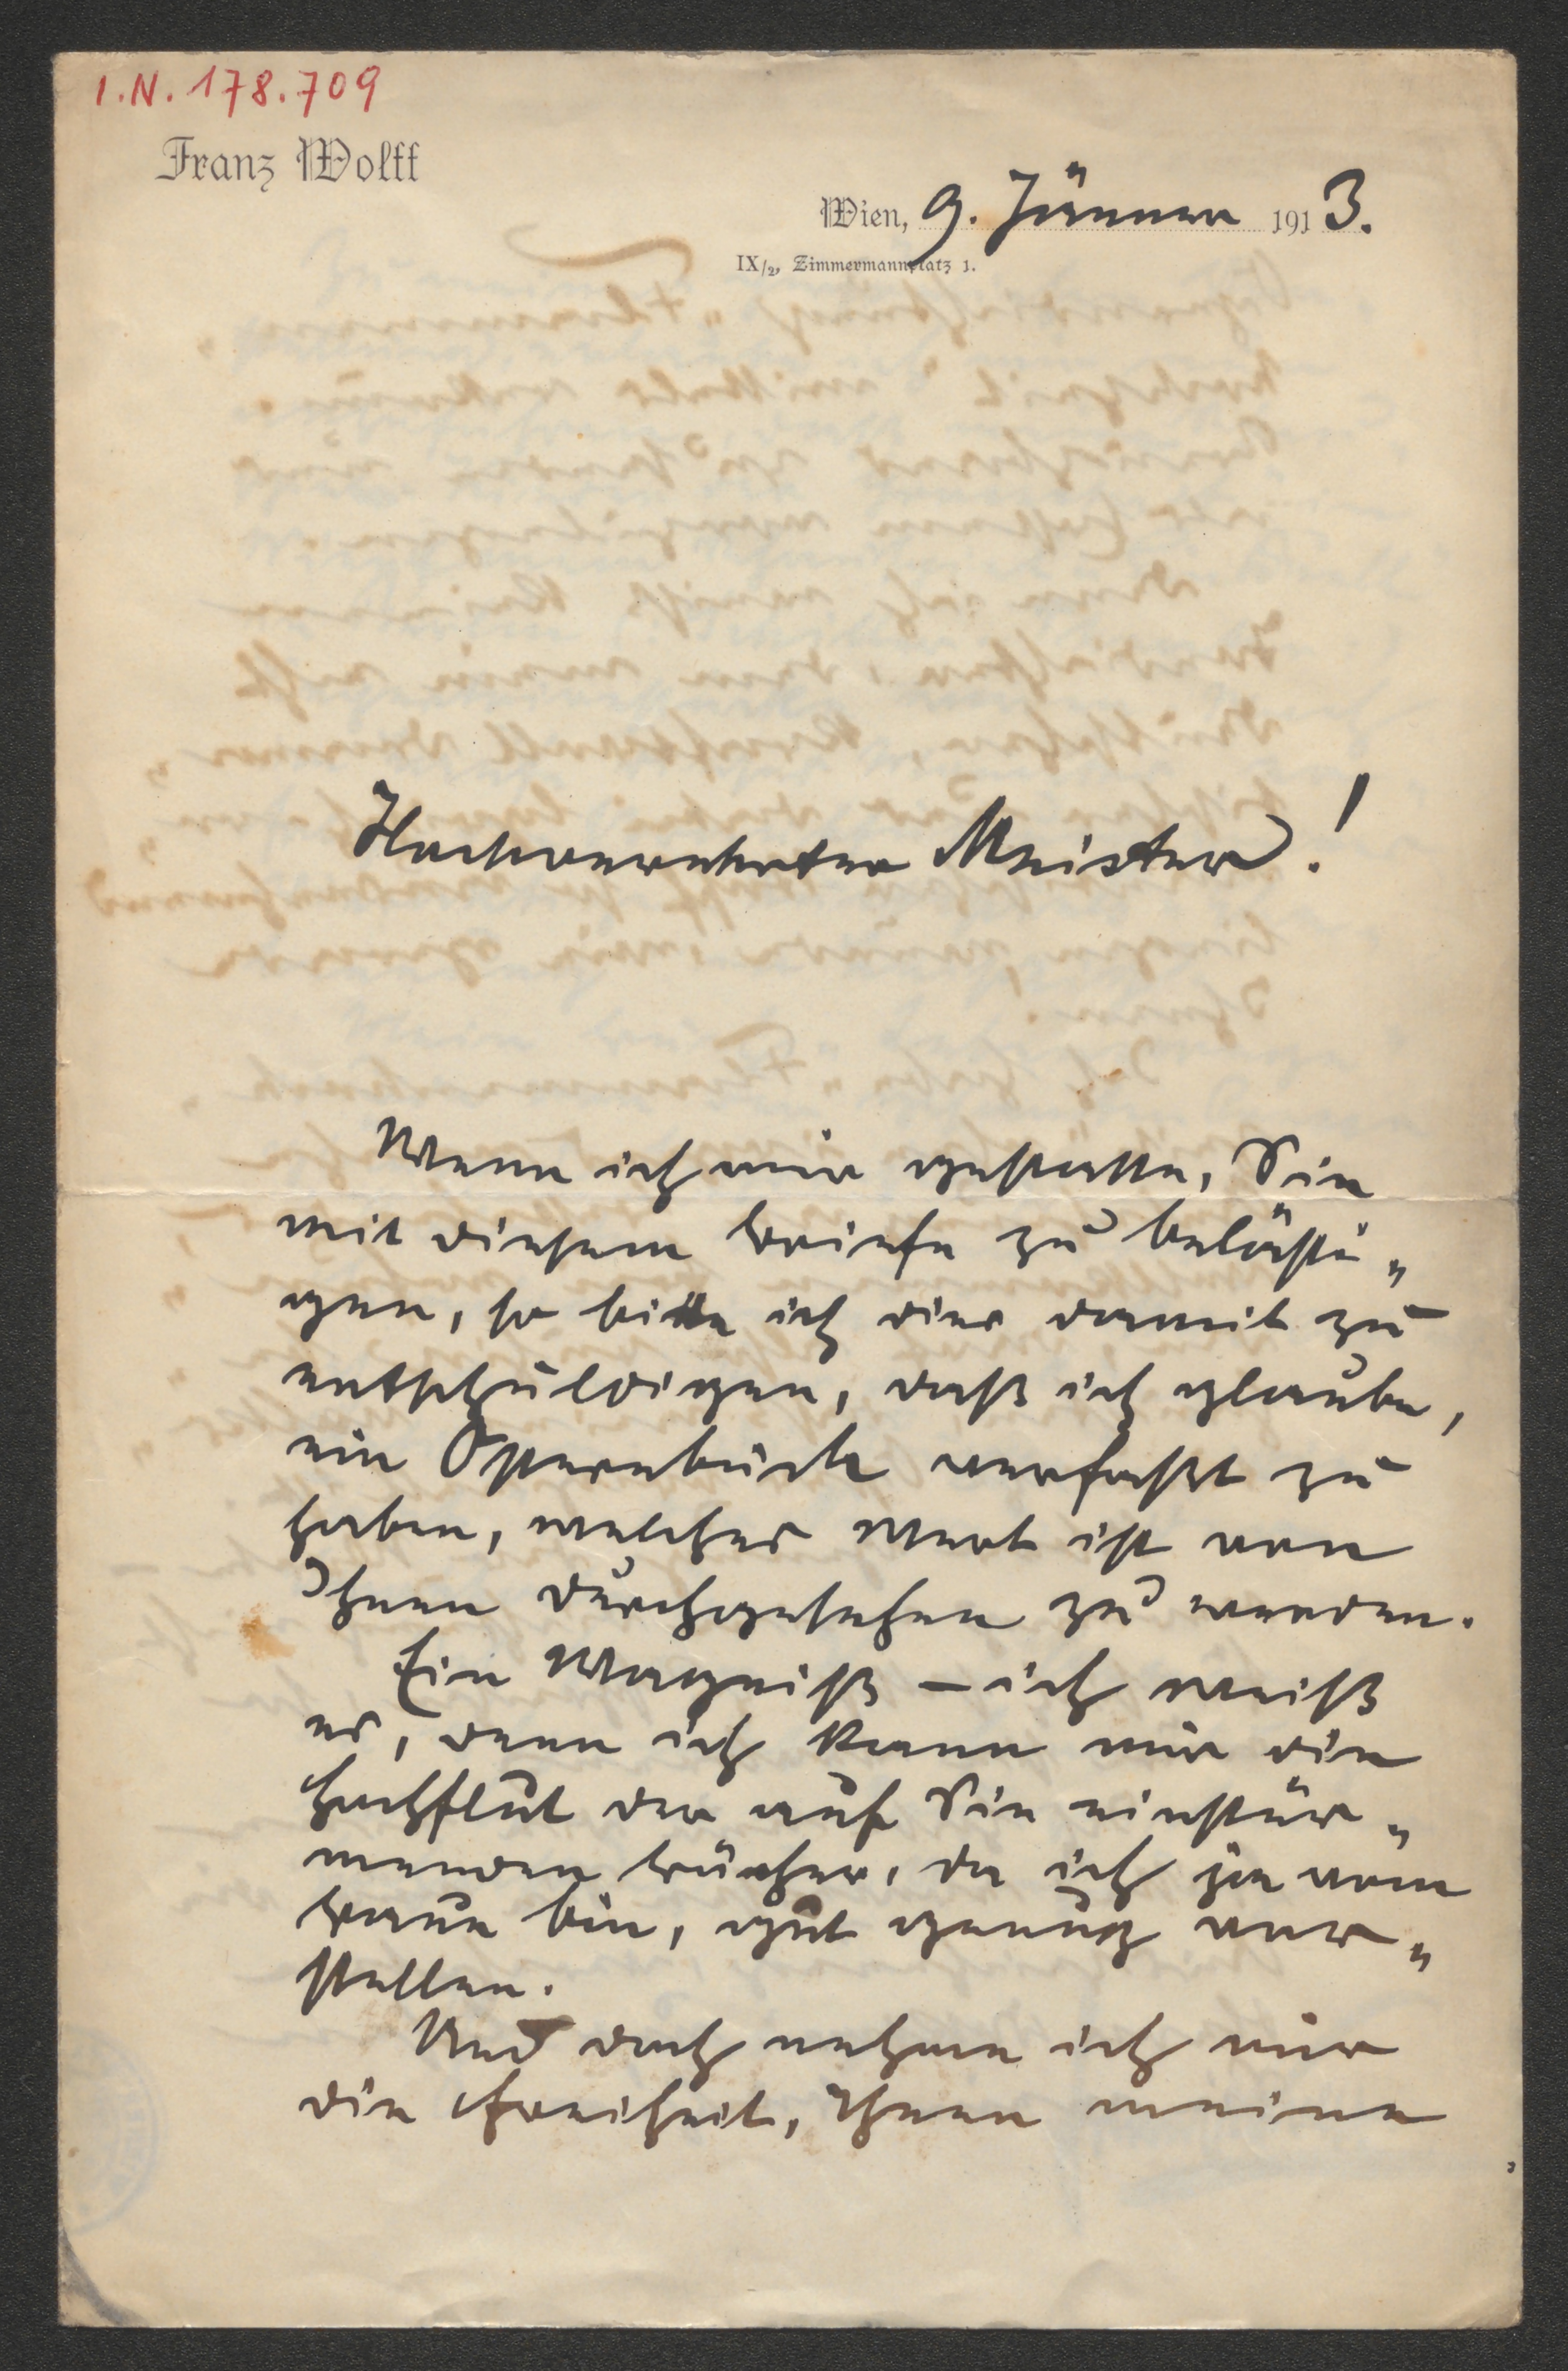 I.N. 178.709
Franz Wolff
Wien, 9. Jänner 1913.
IX/2, Zimmermannplatz 1.
Hochverehrter Meister!
Wenn ich mir gestatte, Sie
mit diesem Briefe zu belästi„
gen, so bitte ich dies damit zu
entschuldigen, daß ich glaube,
ein Opernbuch verfaßt zu
haben, welches wert ist von
Ihnen durchgesehen zu werden.
Ein Wagniß – ich weiß
es, denn ich kann mir die
Hochflut der auf Sie einstür„
menden Bücher, da ich ja vom
Baue bin, gut genug vor„
stellen.
Und doch nehme ich mir
die Freiheit, Ihnen meine